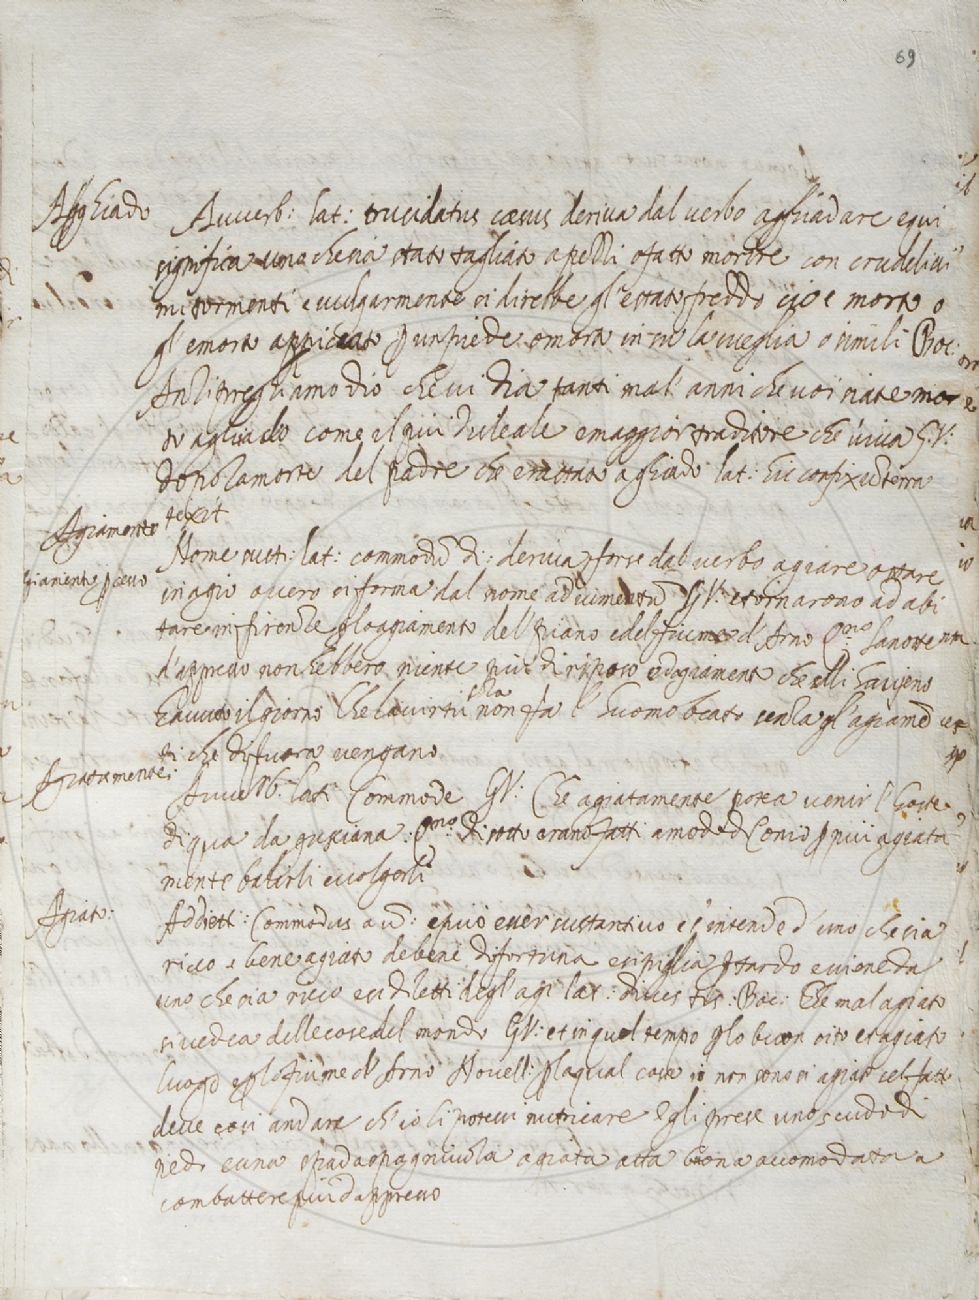 69
Agghiado Avverb: lat: trucidatus cæsus deriva dal verbo agghiadare e qui
significa uno che sia stato tagliato a pezzi o fatto morire con crudelissi
mi tormenti e vulgarmente si direbbe gl'e stato freddo cioè morto o
gl'e morto appiccato un piede o morto in su la sveglia o simili Boc:
preghiamo Dio che vi dia tanti mal'anni che voi siate mor
to agiado come il piu disleale e maggior traditore che viva G:V:
dopo la morte del padre che era stato aghiado lat: hic confixum terra
texit
Agiamento Nome sust: lat: commodum di: deriva forse dal verbo agiare o stare
in agio overo si forma dal nome G:V: e tornarono ad abi
tare in firenze p lo agiamento del piano e del fiume d'Arno
d'appresso non hebbero niente piu di riposo ed agiamento che elli havieno
havuto il giorno Che la virtù sola non fa l'huomo beato senza gl'agiamen
ti che di fuora vengano
Agiatamente: Avverb: lat: Commode G:V: Che agiatamente potea venir l'hoste
di qua da gusciana: di sotto erano fatti a modo di Conio p piu agiata
mente balirli e volgerli
Agiato: Addiett: Commodus a um: e puo esser sustantivo e s'intende d'uno che sia
ricco e bene agiato de beni di fortuna e si piglia p tardo e viene da
uno che sia ricco e si diletti degl'agi lat: dives Boc: Che mal agiato
si vedea delle cose del mondo G:V: et in quel tempo p lo buon sito et agiato
luogo e p lo fiume d'Arno Novell: p la qual cosa io non sono si agiato se l fatto
deve cosi andare ch'io li potessi nutricare Egli prese uno scudo di
piedi e una spada spagnuola agiata atta buona accomodata a
combattere piu d'appresso